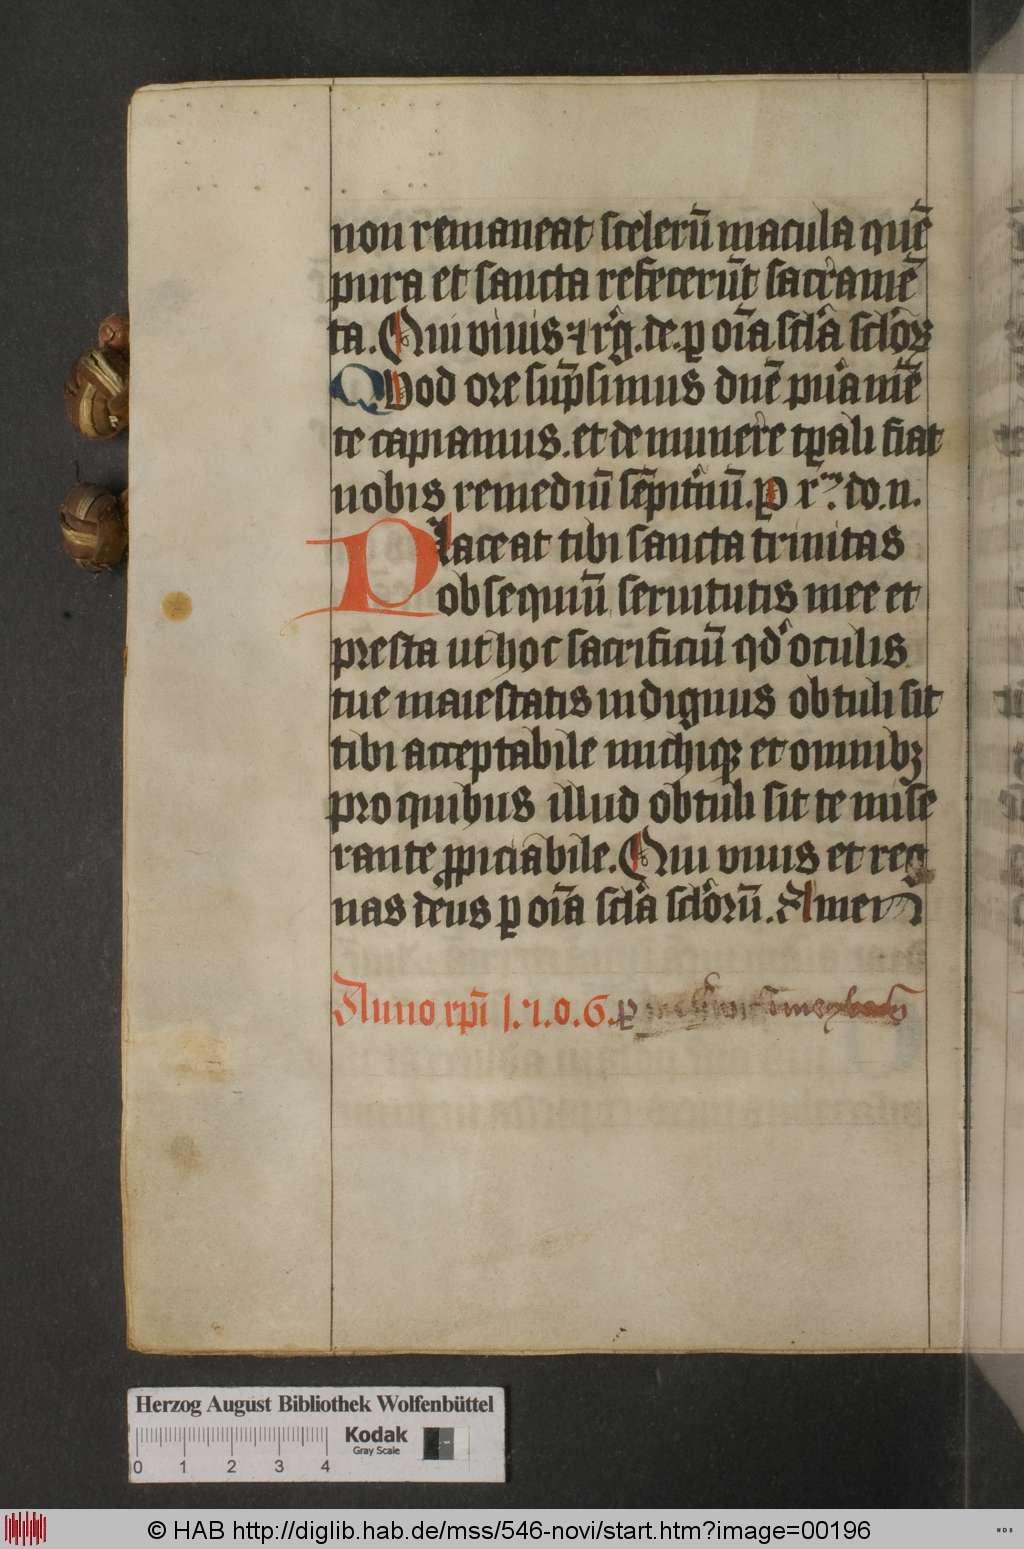 non remaneat scelerū macula quē
pura et sancta refecerūt sacramē
ta. Qui viuis ⁊ rḡ. de. ꝑ oīa scl̄a scl̄oꝝ
Quod ore sūpsimus dnē pura mē
te capiamus. et de munere tꝑali fiat
nobis remediū sēpit̄nū. ꝑ xp̄m do. n.
Placeat tibi sancta trinitas
obsequiū seruitutis mee et
presta ut hoc sacrificiū qd' oculis
tue maiestatis indignus obtuli sit
tibi acceptabile michiqꝫ et omnibꝫ
pro quibus illud obtuli sit te mise
rante ꝓpiciabile. Qui viuis et reg
nas deus ꝑ oīa scl̄a scl̄orū. Amen
Anno xp̄i 1.5.0.6. ꝑ
Herzog August Bibliothek Wolfenbüttel
Kodak
Gray Scale
0 1 2 3 4
© HAB http://diglib.hab.de/mss/546-novi/start.htm?image=00196